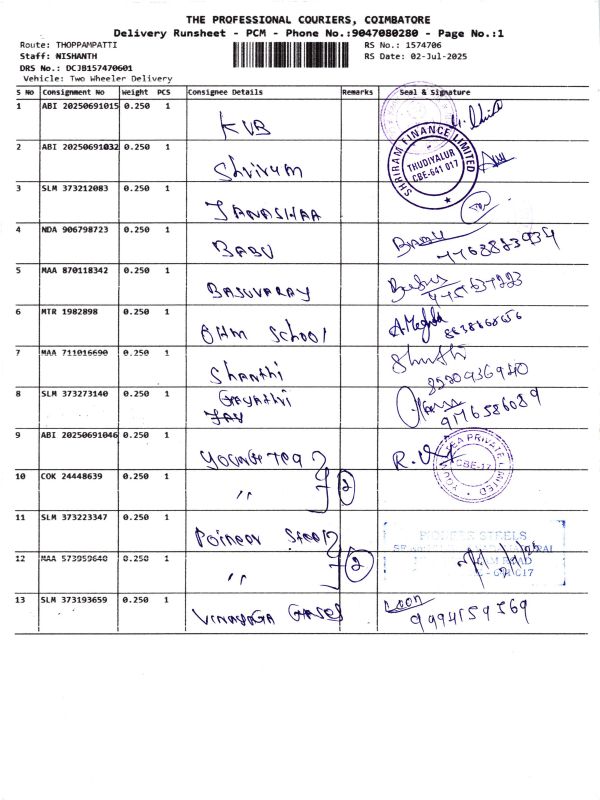 THE PROFESSIONAL COURIERS, COIMBATORE
Delivery Runsheet - PCM - Phone No.:9047080280 - Page No.:1
Route: THOPPAMPATTI
RS No.: 1574706
Staff: NISHANTH
RS Date: 02-Jul-2025
DRS No.: DCJB157470601
Vehicle: Two Wheeler Delivery
S No Consignment No Weight PCS Consignee Details Remarks Seal & Signature
1 ABI 20250691015 0.250 1 KVB
2 ABI 20250691032 0.250 1 Shriram
SHRIRAM FINANCE LIMITED
THUDIYALUR
CBE-641 017
3 SLM 373212083 0.250 1 JANASHAA
4 NDA 906798723 0.250 1 BABU
5 MAA 870118342 0.250 1 BASUVARAY
6 MTR 1982898 0.250 1 OHM School A.Megha
7 MAA 711016690 0.250 1 Shanthi Shanthi
8520936940
8 SLM 373273140 0.250 1 Gayathri
JAY
9776586089
9 ABI 20250691046 0.250 1 YOUNG TEA
TEA PRIVATE LIMITED
CBE-17
10 COK 24448639 0.250 1 〃 2
11 SLM 373223347 0.250 1 Poineer Steel
PIONEER STEELS
12 MAA 573959640 0.250 1 〃 2
13 SLM 373193659 0.250 1 VINAYAGA GASES
9994159369